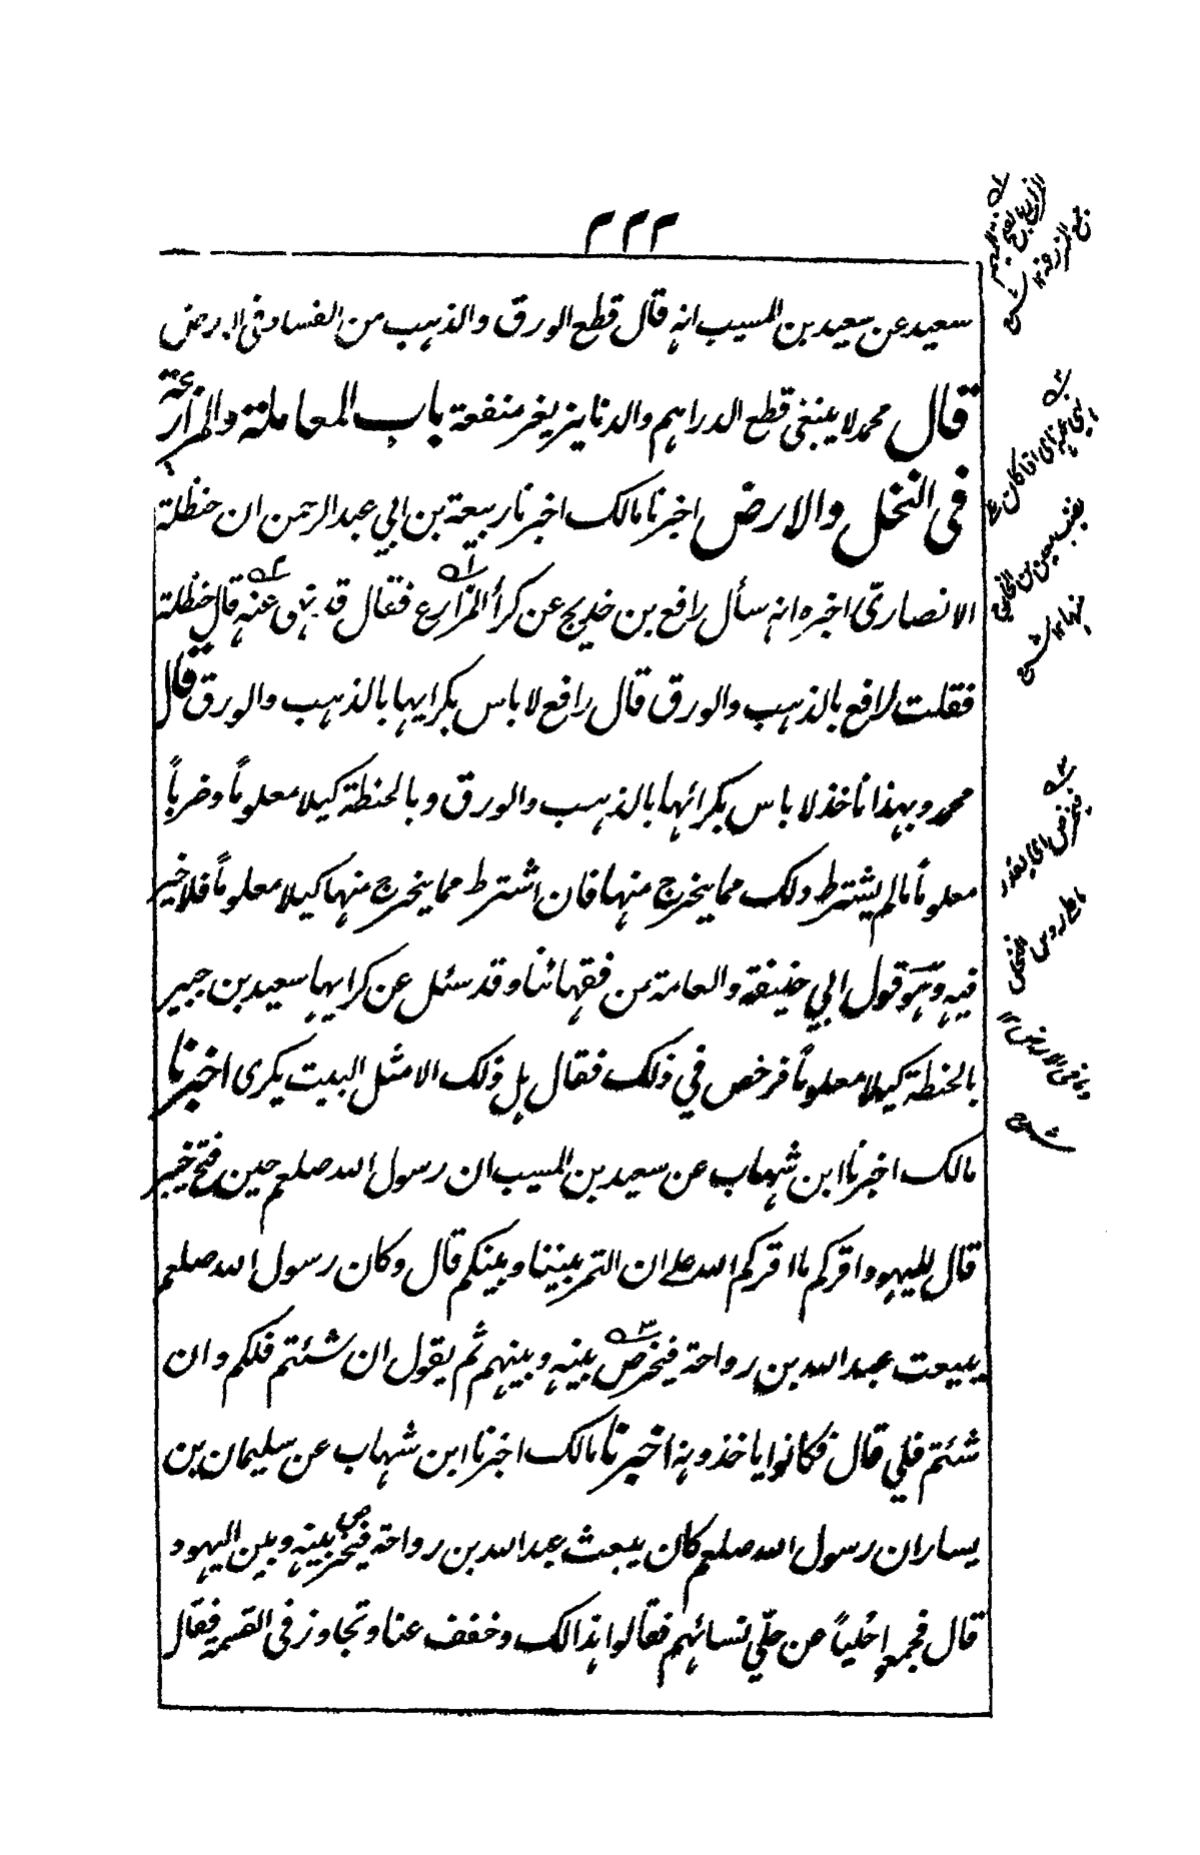 ٢٢٢
سعيد عن سعيد بن المسيب انه قال قطع الورق والذهب من الفساد فى الارض
قال محمد لا ينبغى قطع الدراهم والدنانير بغير منفعة باب المعاملة والمزارعة
فى النخل والارض اخبرنا مالك اخبرنا ربيعة بن ابي عبد الرحمن ان حنظلة
الانصاريّ اخبره انه سأل رافع بن خديج عن كرأ المزارع فقال قد نهى عنه قال حنظلة
فقلت لرافع بالذهب والورق قال رافع لا باس بكرايها بالذهب والورق قال
محمد وبهذا ناخذ لا باس بكرائها بالذهب والورق وبالحنطة كيلا معلوماً وضرباً
معلوماً مالم يشترط ذلك مما يخرج منها فان اشترط مما يخرج منها كيلا معلوماً فلا خير
فيه وهو قول ابي حنيفة والعامة من فقهائنا وقد سئل عن كرايها سعيد بن جبير
بالحنطة كيلا معلوماً فرخص في ذلك فقال هل ذلك الا مثل البيت يكرى اخبرنا
مالك اخبرنا ابن شهاب عن سعيد بن المسيب ان رسول الله صلعم حين فتح خيبر
قال لليهود اقركم ما اقركم الله على ان التمر بيننا وبينكم قال وكان رسول الله صلعم
يبعث عبد الله بن رواحة فيخرص بينه وبينهم ثم يقول ان شئتم فلكم وان
شئتم فلي قال فكانوا ياخذونه اخبرنا مالك اخبرنا ابن شهاب عن سليمان بن
يسار ان رسول الله صلعم كان يبعث عبد الله بن رواحة فيخرص بينه وبين اليهود
قال فجمعوا حُلياً من حلّي نسائهم فقالوا هذا لك وخفف عنا وتجاوز فى القسمة فقال
٣
فيخرص اى يقدر
ما على روس النخل
وما فى الارض ١٢